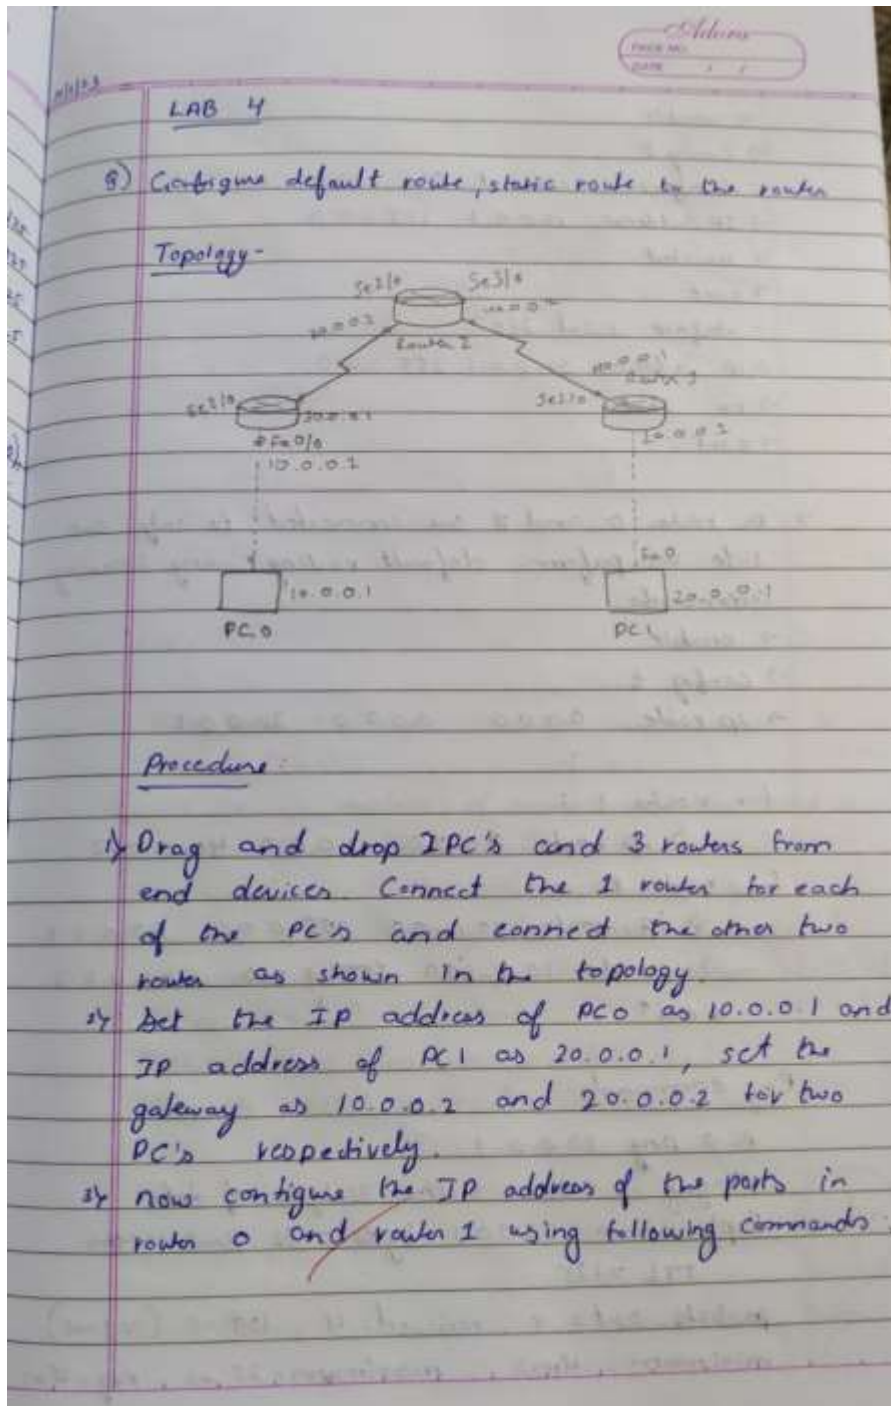 Adarsa
PAGE NO.
DATE / /
LAB 4
Configure default route, static route to the router
Topology -
Se2/0 Se3/0
Router 2
Se2/0
Fa0/0
10.0.0.2
Fa0
10.0.0.1 20.0.0.1
PC0 PC1
Procedure:
1) Drag and drop 2PC's and 3 routers from
end devices. Connect the 1 router for each
of the PC's and connect the other two
router as shown in the topology.
2) Set the IP address of PC0 as 10.0.0.1 and
IP address of PC1 as 20.0.0.1, set the
gateway as 10.0.0.2 and 20.0.0.2 for two
PC's respectively.
3) now configure the IP address of the ports in
router 0 and router 1 using following commands.